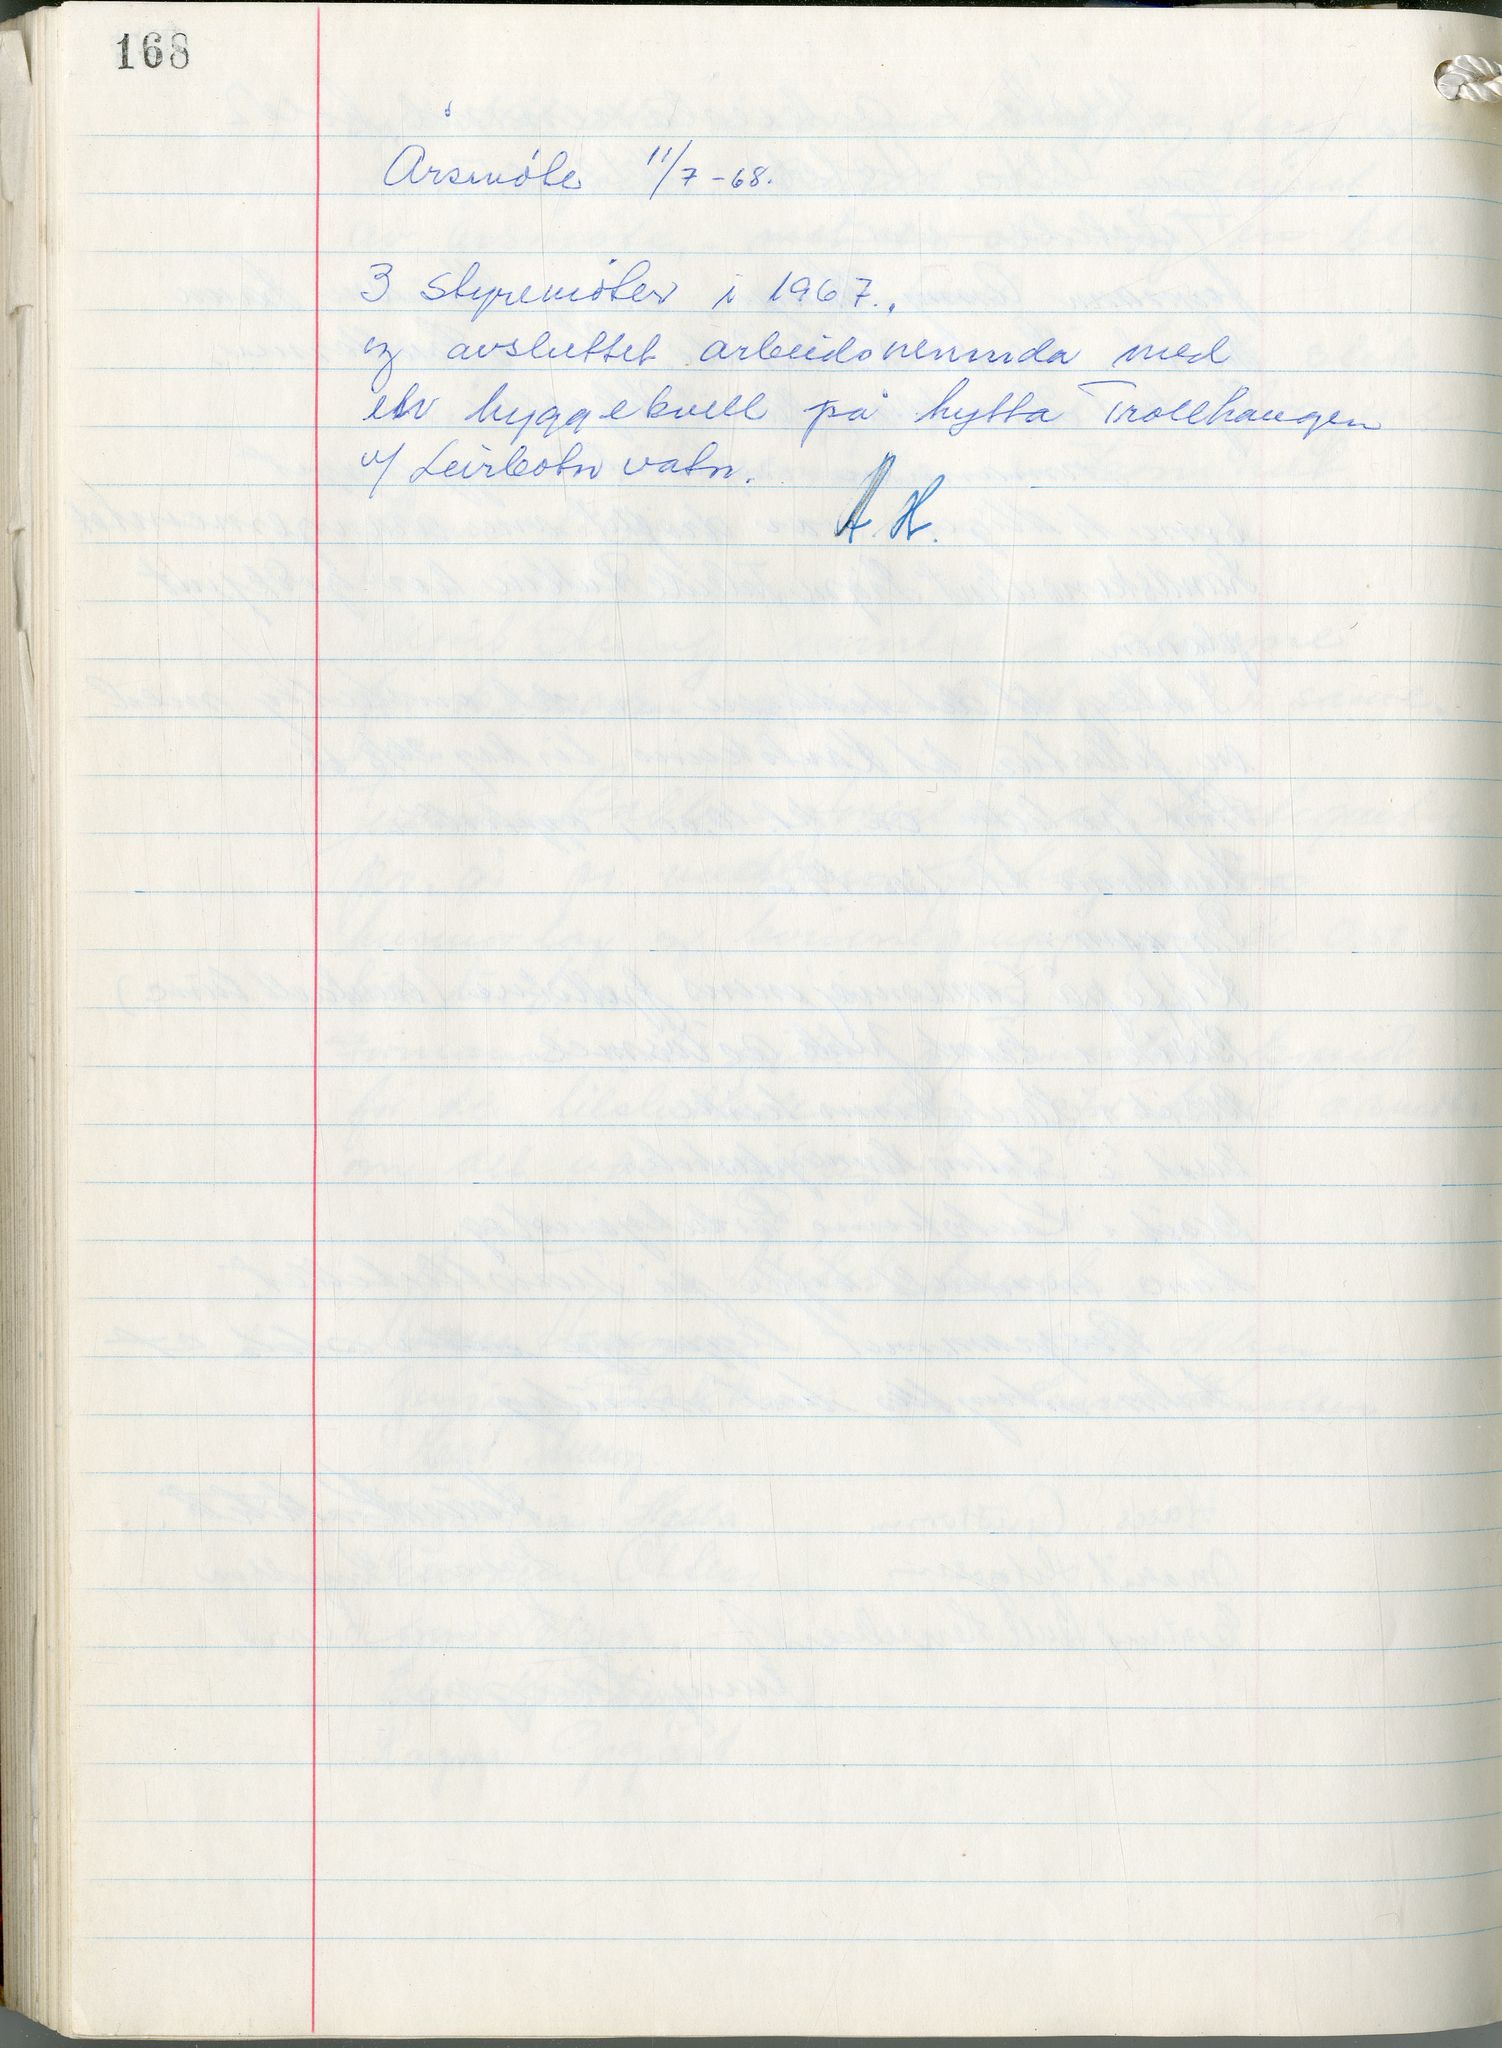 168
Årsmöte 11/7-68.
3 styremöter i 1967.
og avsluttet arbeidsnemnda med
en hyggekvell på hytta Trollhaugen
v/ Leirbotn vatn.
A.H.